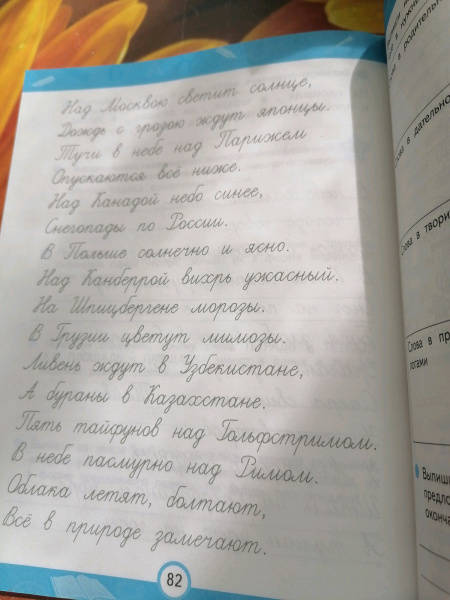 Над Москвою светит солнце,
Дождь с грозою ждут японцы.
Тучи в небе над Парижем
Опускаются всё ниже.
Над Канадой небо синее,
Снегопады по России.
В Польше солнечно и ясно.
Над Канберрой вихрь ужасный.
На Шпицбергене морозы.
В Грузии цветут мимозы.
Ливень ждут в Узбекистане,
А бураны в Казахстане.
Пять тайфунов над Гольфстримом.
В небе пасмурно над Римом.
Облака летят, болтают,
Всё в природе замечают.
82
в родительно
Слова в дательно
Слова в твори
Слова в пр
логами
Выпиши
предло
оконча